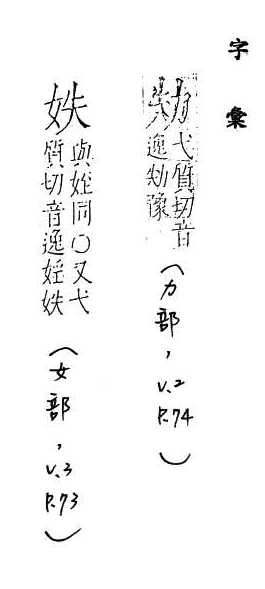 字彙
劮
弋質切音
逸劮豫
（力部，V.2 P.74）
妷
與姪同○又弋
質切音逸婬妷
（女部，V.3 P.73）